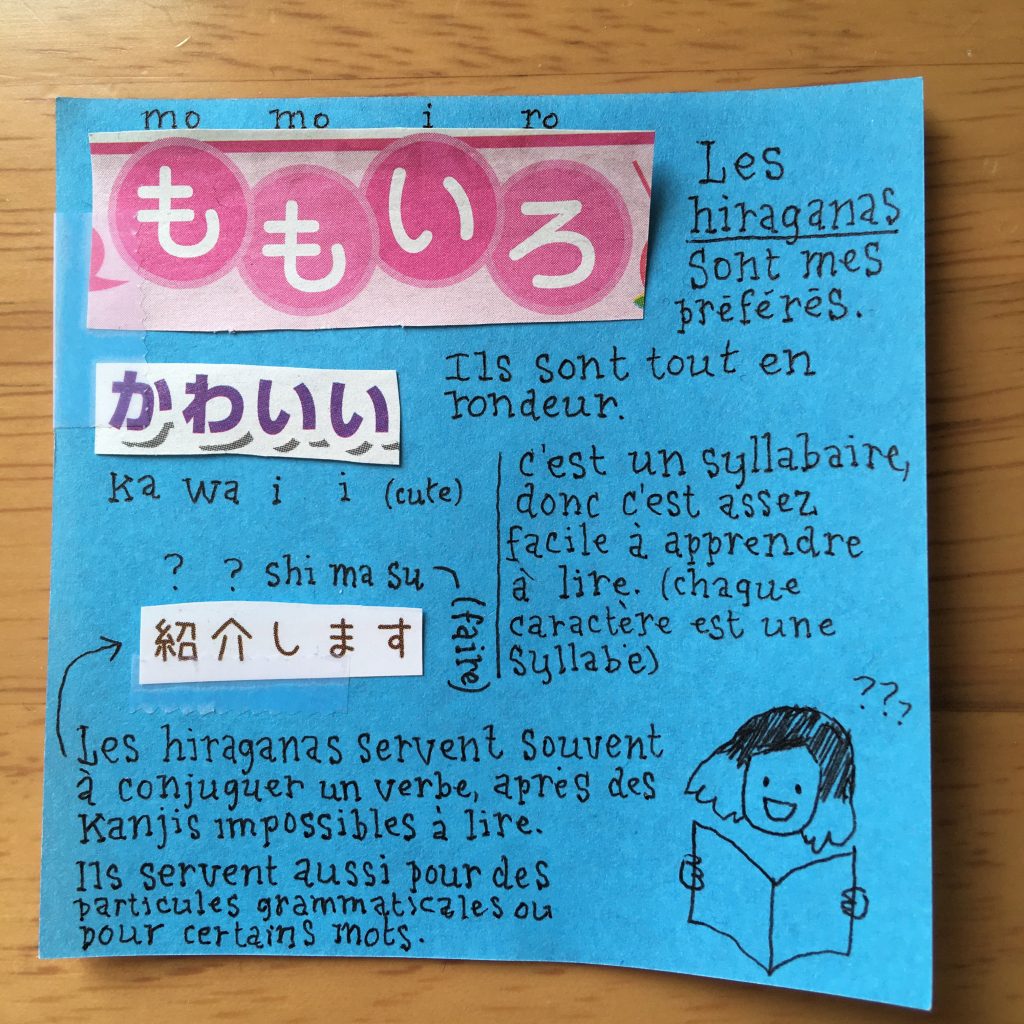 mo mo i ro
ももいろ
Les
hiraganas
sont mes
préférés.
かわいい
ka wa i i (cute)
Ils sont tout en
rondeur.
c'est un syllabaire,
donc c'est assez
facile à apprendre
à lire. (chaque
caractère est une
syllabe)
? ? shi ma su
(faire)
紹介します
Les hiraganas servent souvent
à conjuguer un verbe, après des
kanjis impossibles à lire.
Ils servent aussi pour des
particules grammaticales ou
pour certains mots.
???